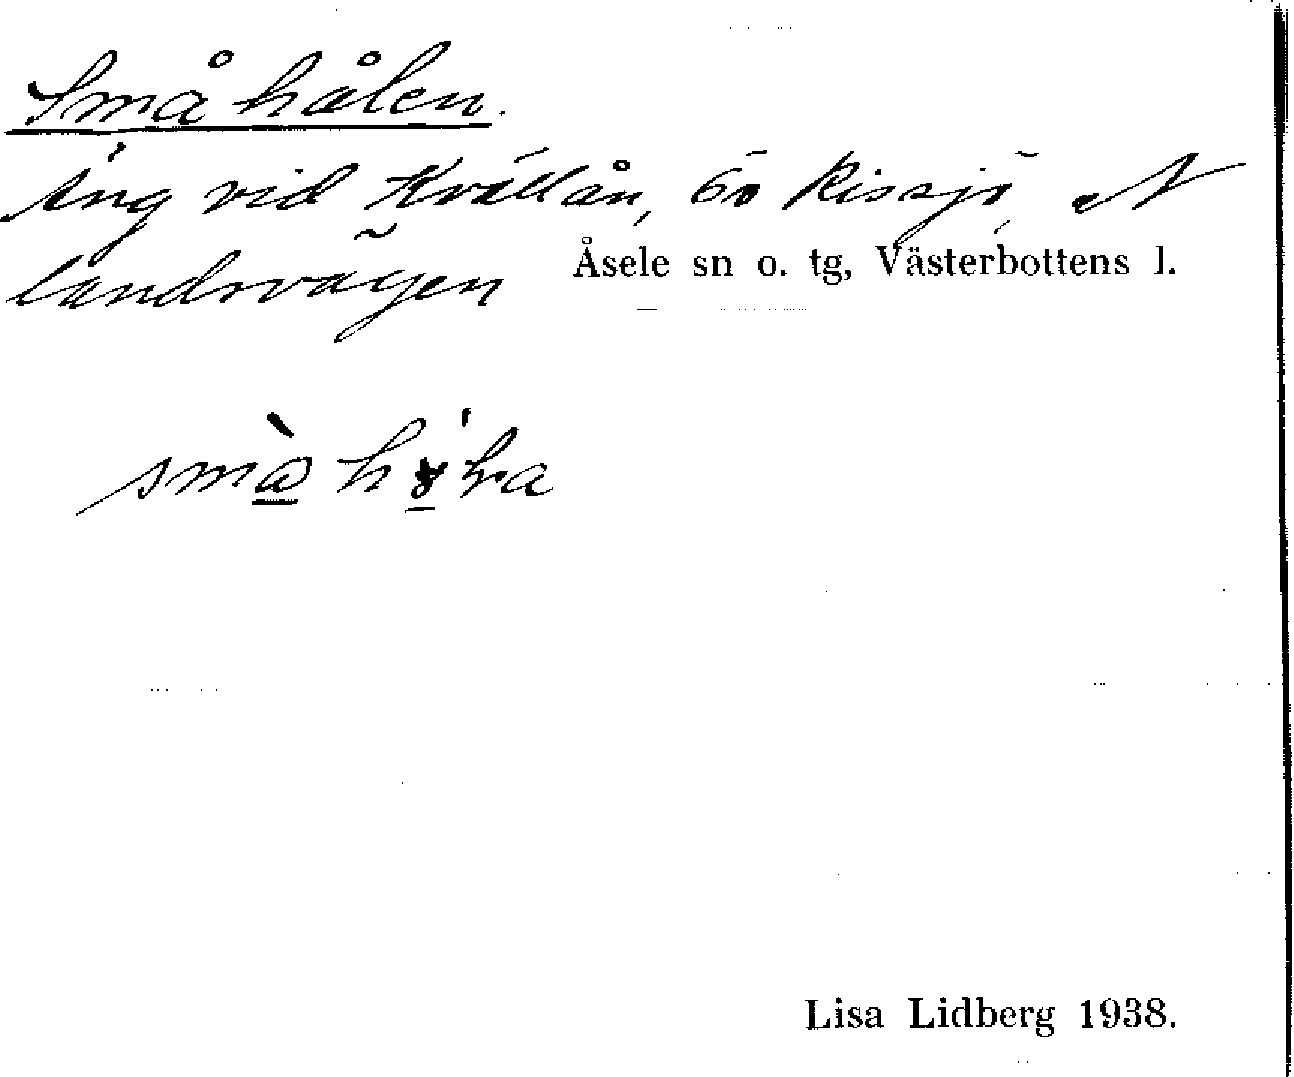 Småhålen.
Äng vid Kvällån, Sö Rissjö, N
landsvägen
Åsele sn o. tg, Västerbottens l.
Lisa Lidberg 1938.